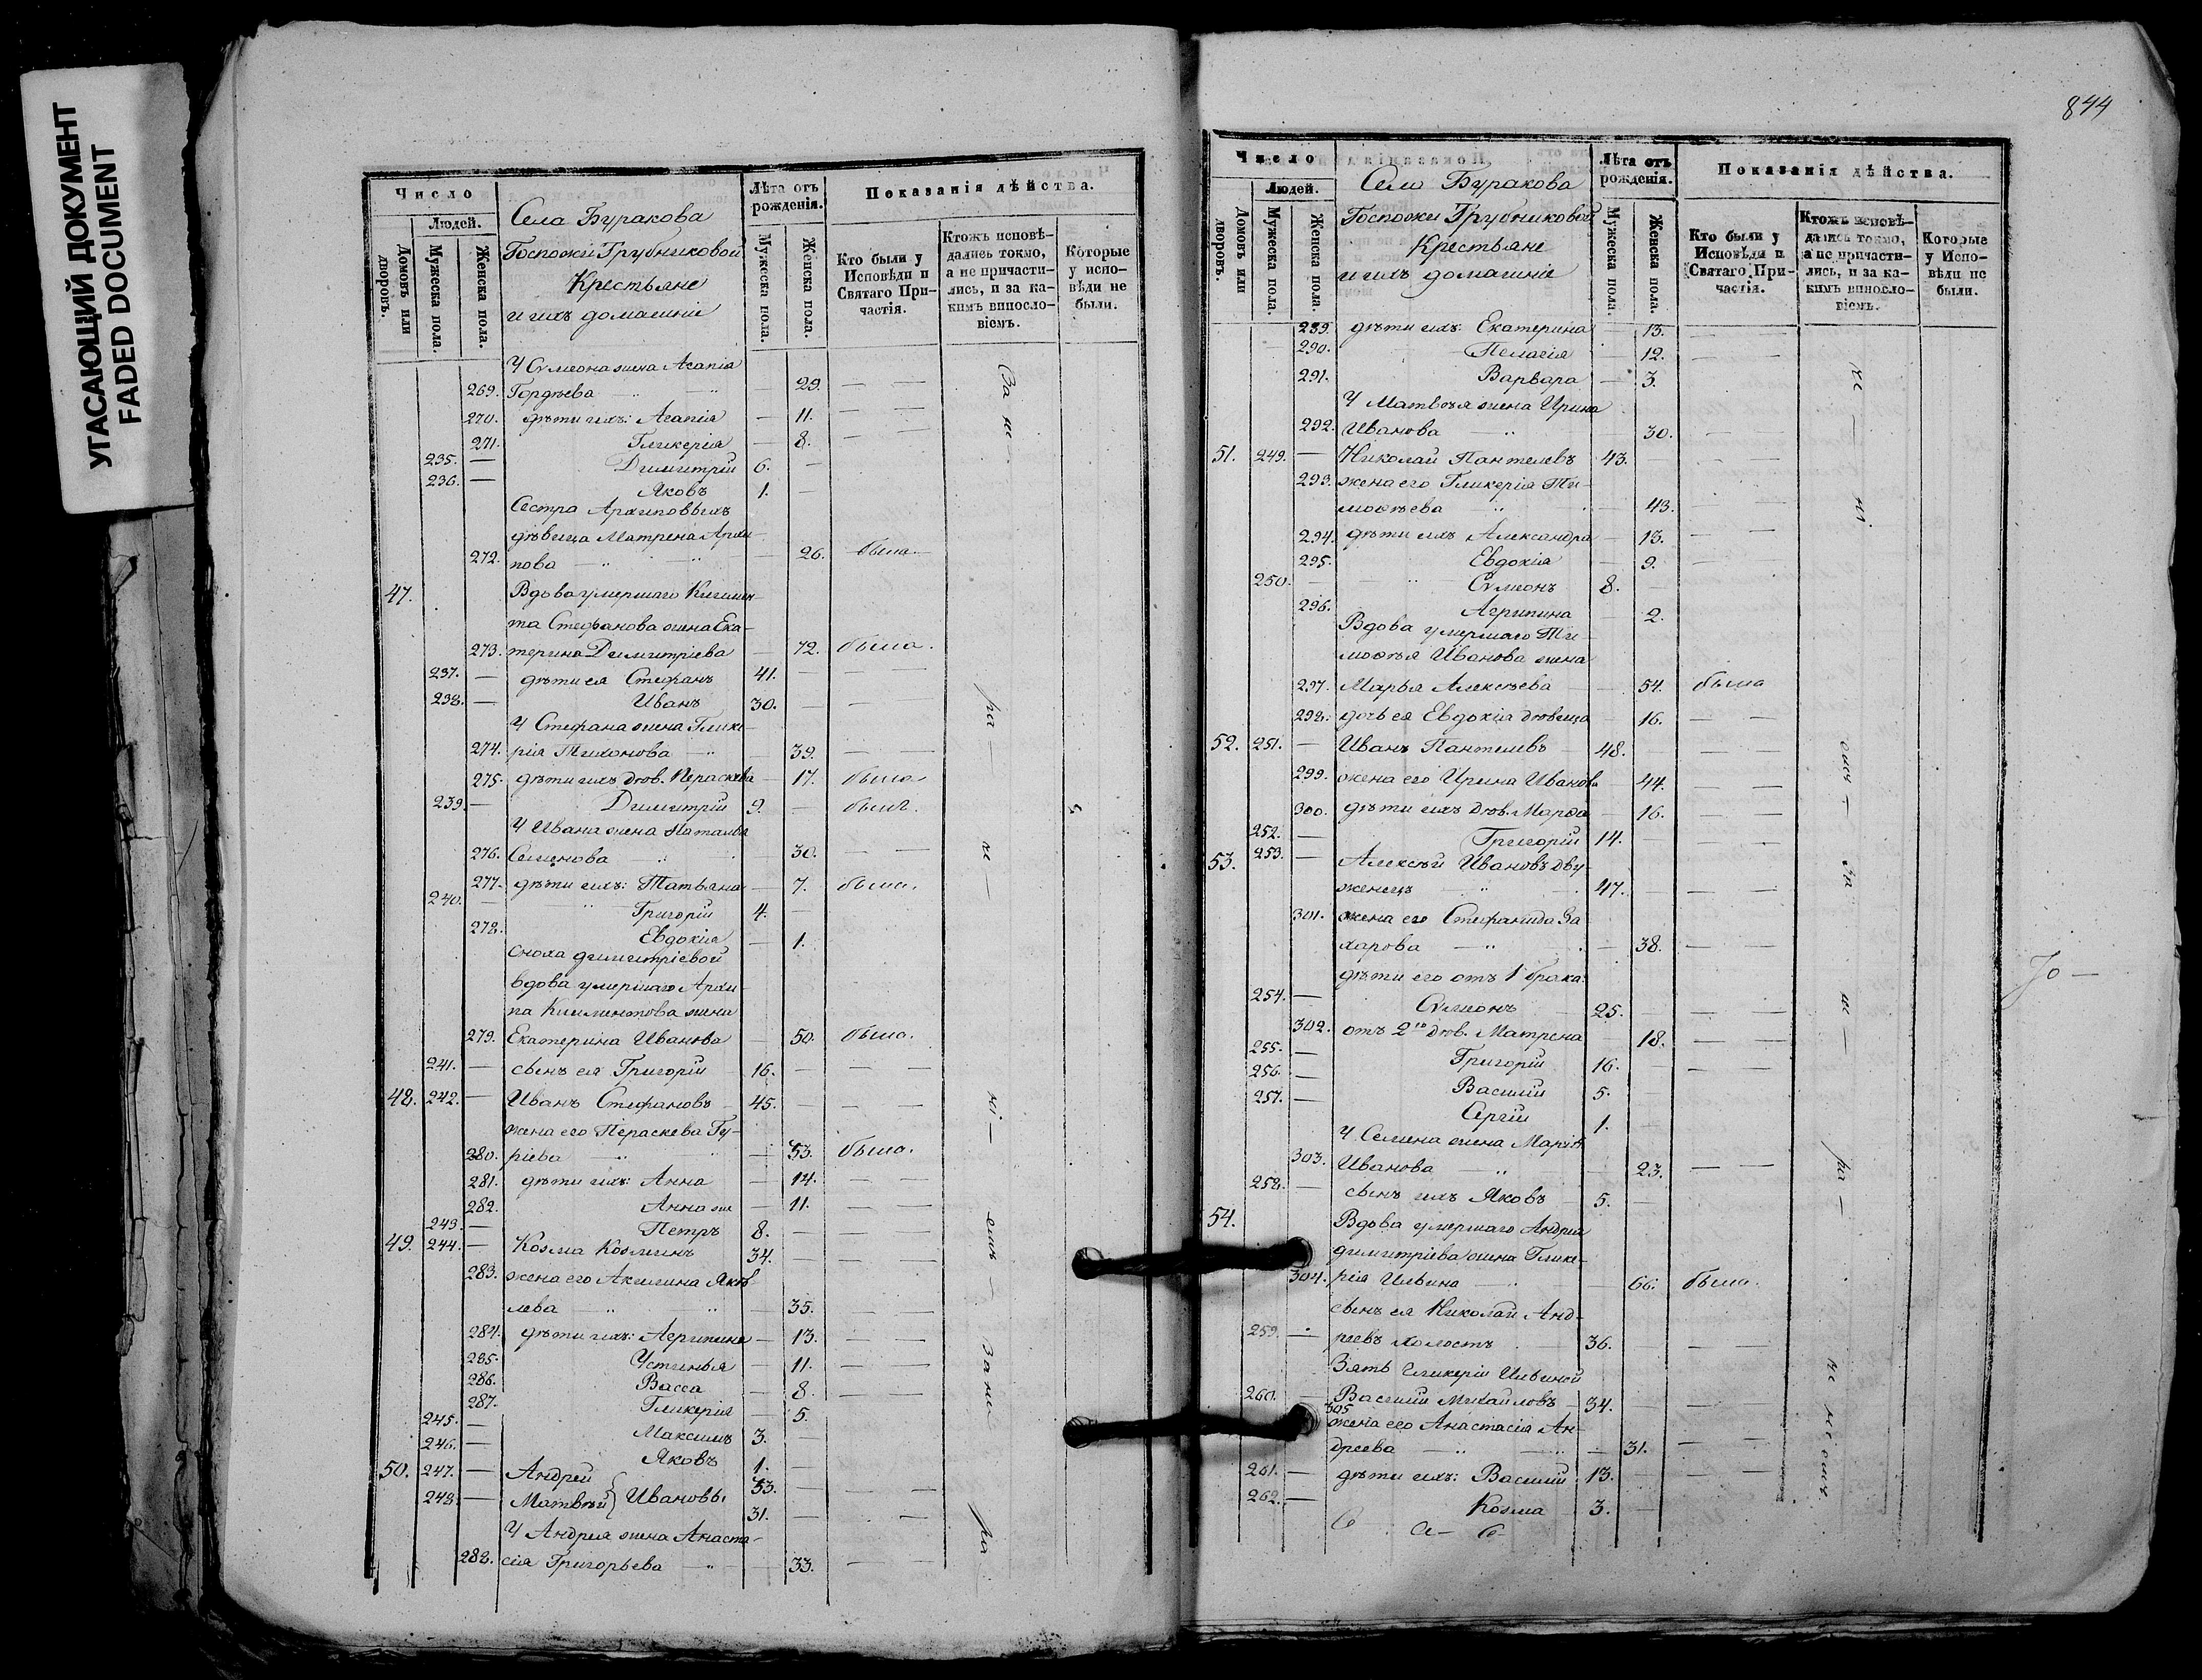 УГАСАЮЩИЙ ДОКУМЕНТ
FADED DOCUMENT
Число
Людей.
Домовъ или дворовъ.
Мужеска пола.
Женска пола.
Села Буракова
Госпожи Трубниковой
Крестьяне
и ихъ домашніе
Лѣта отъ рожденія.
Мужеска пола.
Женска пола.
Показанія дѣйства.
Кто были у Исповѣди и Святаго Причастія.
Ктожъ исповѣ-
дались токмо,
а не причасти-
лись, и за ка-
кимъ винослo-
віемъ.
Которые
у испо-
вѣди не
были.
У Сѵмеона жена Агапія
269. Гордѣева — 29. — —
270. дѣти ихъ: Агапія — 11. — —
271. Гликерія — 8. — —
235. — Димитрій 6. —
236. — Яковъ 1. —
Сестра Архиповыхъ
дѣвица Матрена Архи-
272. пова — 26. была.
47. Вдова умершаго Климен-
та Стефанова жена Ека-
273. терина Димитріева — 72. была.
237. — дѣти ея Стефанъ 41. — —
238. — Иванъ 30. — —
У Стефана жена Глике-
274. рія Тихонова — 39. — —
275. дѣти ихъ дѣв. Параскева — 17. была
239. — Димитрій 9. — былъ.
У Ивана жена Наталья
276. Семенова — 30. — —
277. дѣти ихъ: Татьяна — 7. была.
240. — Григорій 4. —
278. Евдокія — 1.
Сноха Димитріевой
вдова умершаго Архи-
па Климентова жена
279. Екатерина Иванова — 50. была.
241. — сынъ ея Григорій 16. — — —
48. 242. — Иванъ Стефановъ 45. — — —
жена его Пераскева Гу-
280. ріева — 53. была.
281. дѣти ихъ: Анна — 14. — —
282. Анна же — 11. — —
243. — Петръ 8. — — —
49. 244. — Козма Козминъ 34. — — —
283. жена его Акилина Яков
лева — 35. — —
284. дѣти ихъ: Агрипина — 13. — —
285. Устинья — 11. — —
286. Васса — 8. —
287. Гликерія — 5.
245. — Максимъ 3. —
246. — Яковъ 1. —
50. 247. — Андрей } Ивановы 53. — —
248. — Матвѣй 31. — — —
У Андрея жена Анаста-
288. сія Григорьева — 33. — —
844
Число
Людей.
Домовъ или дворовъ.
Мужеска пола.
Женска пола.
Села Буракова
Госпожи Трубниковой
Крестьяне
и ихъ домашніе
Лѣта отъ рожденія.
Мужеска пола.
Женска пола.
Показанія дѣйства.
Кто были у
Исповѣди и
Святаго При-
частія.
Ктожъ исповѣ-
дались токмо,
а не причасти-
лись, и за ка-
кимъ винослo-
віемъ.
Которые
у Испо-
вѣди не
были.
289. дѣти ихъ: Екатерина — 13. — —
290. Пелагія — 12. — —
291. Варвара — 3. —
У Матвѣя жена Ирина
292. Иванова — 30. —
51. 249. — Николай Пантелевъ 43. — —
293. жена его Гликерія Ти-
моѳеева — 43. — —
294. дѣти ихъ Александра — 13. —
295. Евдокія — 9. —
250. — Сѵмеонъ 8. —
296. Агрипина — 2.
Вдова умершаго Ти-
моѳея Иванова жена
297. Марья Алексѣева — 54. была
298. дочь ея Евдокія дѣвица — 16. — —
52. 251. — Иванъ Пантелевъ 48. — — —
299. жена его Ирина Иванова 44. — —
300. дѣти ихъ дѣв. Марѳа — 16. — —
252. — Григорій 14. — — —
53. 253. — Алексѣй Ивановъ дву-
женецъ — 47. — — —
301. жена его Стефанида За
харова — 38. — —
дѣти его отъ 1 брака:
254. — Сѵмеонъ 25. — — —
302. отъ 2го дѣв. Матрена — 18. — —
255. — Григорій 16. — — —
256. — Василій 5. —
257. — Сергій 1. —
У Семена жена Марія
303. Иванова — 23. — —
258. — сынъ ихъ Яковъ 5. —
54. Вдова умершаго Андрея
Димитріева жена Глике-
304. рія Ильина — 66. была.
сынъ ея Николай Анд-
259. — реевъ холостъ 36. — — —
Зять Гликеріи Ильиной
260. — Василій Михайловъ 34. — —
305 жена его Анастасія Ан-
дреева — 31. — —
261. — дѣти ихъ: Василій 13. — —
262. — Козма 3. —